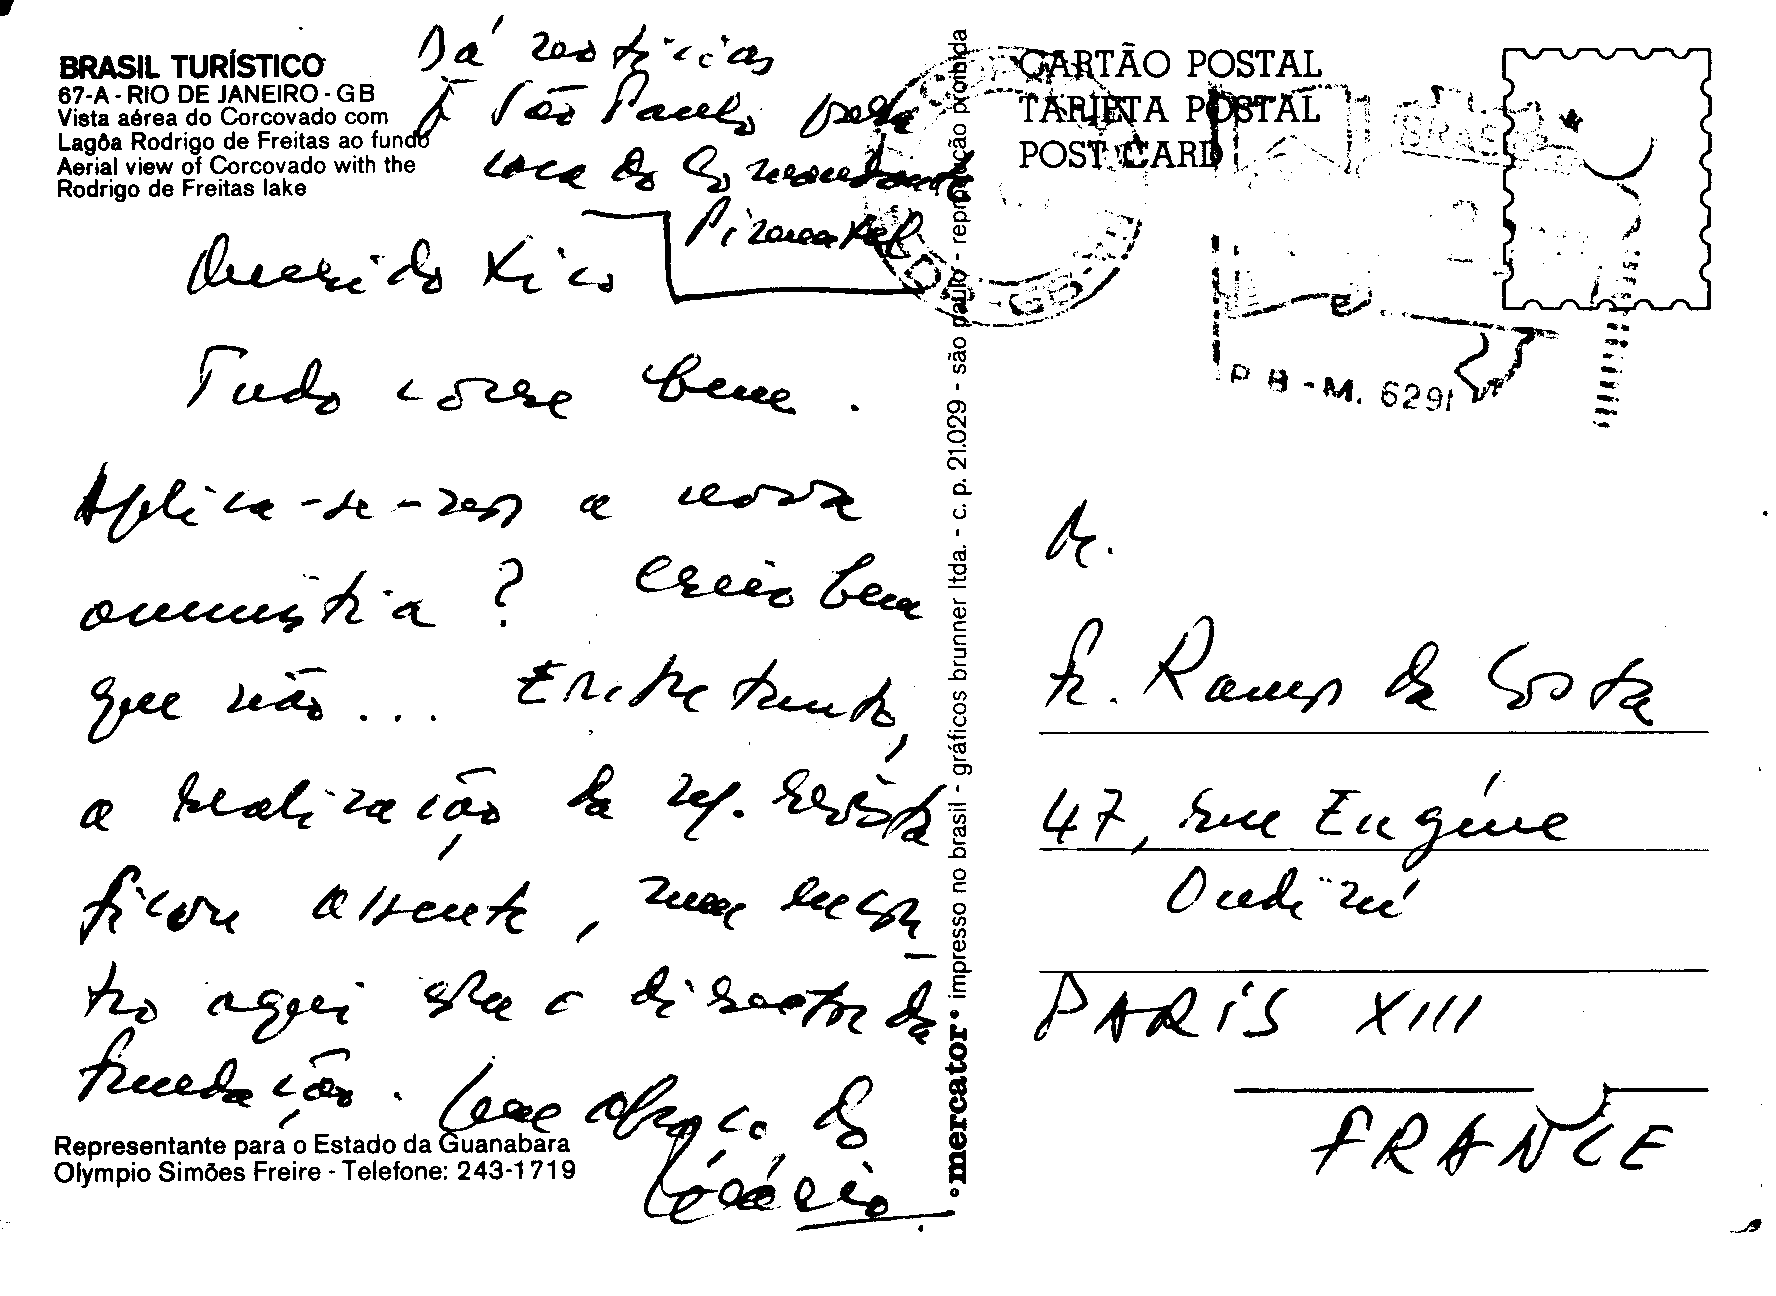 BRASIL TURÍSTICO
67-A - RIO DE JANEIRO - GB
Vista aérea do Corcovado com
Lagôa Rodrigo de Freitas ao fundo
Aerial view of Corcovado with the
Rodrigo de Freitas lake
Dá notícias
P São Paulo para
casa do Comandante
Pimentel
Querido Xico
Tudo corre bem.
Aplica-se-nos a nova
amnistia? Creio bem
que não... Entretanto,
a realização da nf. revista
ficou assente, num encon
tro aqui com o director da
Fundação. Um abraço do
Representante para o Estado da Guanabara
Olympio Simões Freire - Telefone: 243-1719
•mercator• impresso no brasil - gráficos brunner ltda. - c. p. 21.029 - são paulo - reprodução proibida
CARTÃO POSTAL
TARJETA POSTAL
POST CARD
BRASIL
GB
P B - M. 6291
Fr. Ramos da Costa
47, rue Eugéne
Oudiné
PARÍS XIII
FRANCE